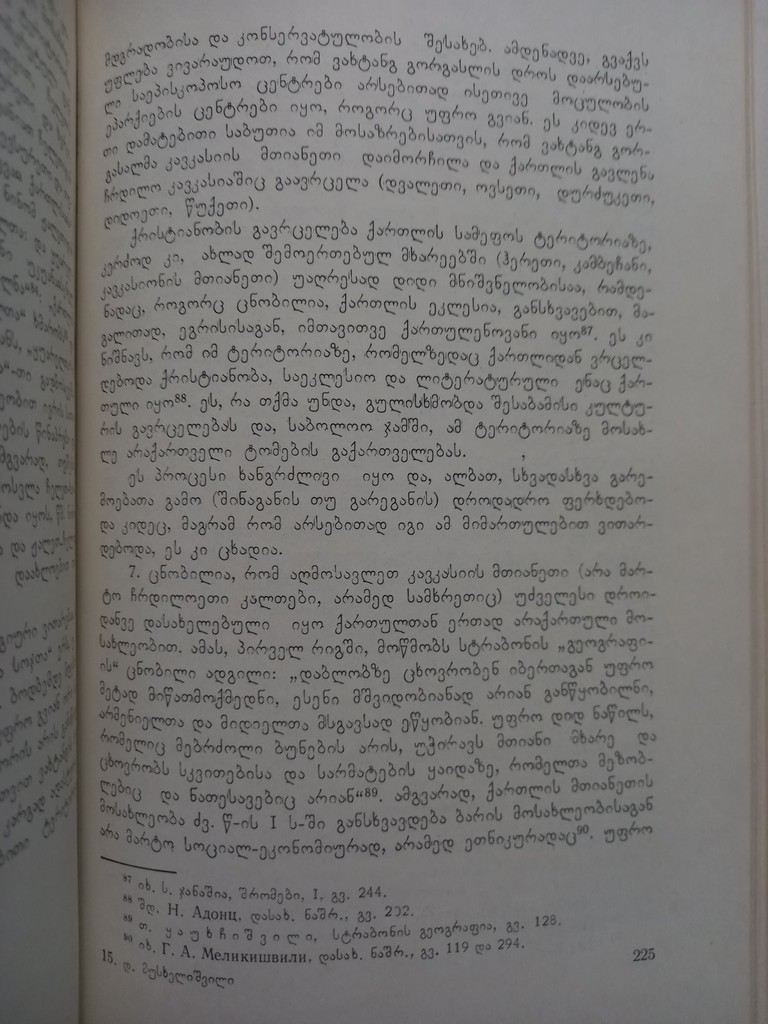 მდგრადობისა და კონსერვატულობის შესახებ. ამდენადვე, გვაქვს
უფლება ვივარაუდოთ, რომ ვახტანგ გორგასლის დროს დაარსებუ-
ლი საეპისკოპოსო ცენტრები არსებითად ისეთივე მოცულობის
ეპარქიების ცენტრები იყო, როგორც უფრო გვიან. ეს კიდევ ერ-
თი დამატებითი საბუთია იმ მოსაზრებისათვის, რომ ვახტანგ გორ-
გასალმა კავკასიის მთიანეთი დაიმორჩილა და ქართლის გავლენა
ჩრდილო კავკასიაშიც გაავრცელა (დვალეთი, ოვსეთი, დურძუკეთი,
დიდოეთი, წუქეთი).
ქრისტიანობის გავრცელება ქართლის სამეფოს ტერიტორიაზე,
კერძოდ კი, ახლად შემოერთებულ მხარეებში (ჰერეთი, კამბეჩანი,
კავკასიონის მთიანეთი) უაღრესად დიდი მნიშვნელობისაა, რამდე-
ნადაც, როგორც ცნობილია, ქართლის ეკლესია, განსხვავებით, მა-
გალითად, ეგრისისაგან, იმთავითვე ქართულენოვანი იყო⁸⁷. ეს კი
ნიშნავს, რომ იმ ტერიტორიაზე, რომელზედაც ქართლიდან ვრცელ-
დებოდა ქრისტიანობა, საეკლესიო და ლიტერატურული ენაც ქარ-
თული იყო⁸⁸. ეს, რა თქმა უნდა, გულისხმობდა შესაბამისი კულტუ-
რის გავრცელებას და, საბოლოო ჯამში, ამ ტერიტორიაზე მოსახ-
ლე არაქართველი ტომების გაქართველებას.
ეს პროცესი ხანგრძლივი იყო და, ალბათ, სხვადასხვა გარე-
მოებათა გამო (შინაგანის თუ გარეგანის) დროდადრო ფერხდებო-
და კიდეც, მაგრამ რომ არსებითად იგი ამ მიმართულებით ვითარ-
დებოდა, ეს კი ცხადია.
7. ცნობილია, რომ აღმოსავლეთ კავკასიის მთიანეთი (არა მარ-
ტო ჩრდილოეთი კალთები, არამედ სამხრეთიც) უძველესი დროი-
დანვე დასახელებული იყო ქართულთან ერთად არაქართული მო-
სახლეობით. ამას, პირველ რიგში, მოწმობს სტრაბონის „გეოგრაფი-
ის“ ცნობილი ადგილი: „დაბლობზე ცხოვრობენ იბერთაგან უფრო
მეტად მიწათმოქმედნი, ესენი მშვიდობიანად არიან განწყობილნი,
არმენიელთა და მიდიელთა მსგავსად ეწყობიან. უფრო დიდ ნაწილს,
რომელიც მებრძოლი ბუნების არის, უჭირავს მთიანი მხარე და
ცხოვრობს სკვითებისა და სარმატების ყაიდაზე, რომელთა მეზობ-
ლებიც და ნათესავებიც არიან“⁸⁹. ამგვარად, ქართლის მთიანეთის
მოსახლეობა ძვ. წ-ის I ს-ში განსხვავდება ბარის მოსახლეობისაგან
არა მარტო სოციალ-ეკონომიურად, არამედ ეთნიკურადაც⁹⁰. უფრო
⁸⁷ იხ. ს. ჯანაშია, შრომები, I, გვ. 244.
⁸⁸ შდ. Н. Адонц, დასახ. ნაშრ., გვ. 202.
⁸⁹ თ. ყაუხჩიშვილი, სტრაბონის გეოგრაფია, გვ. 128.
⁹⁰ იხ. Г. А. Меликишвили, დასახ. ნაშრ., გვ. 119 და 294.
15. დ. მუსხელიშვილი
225